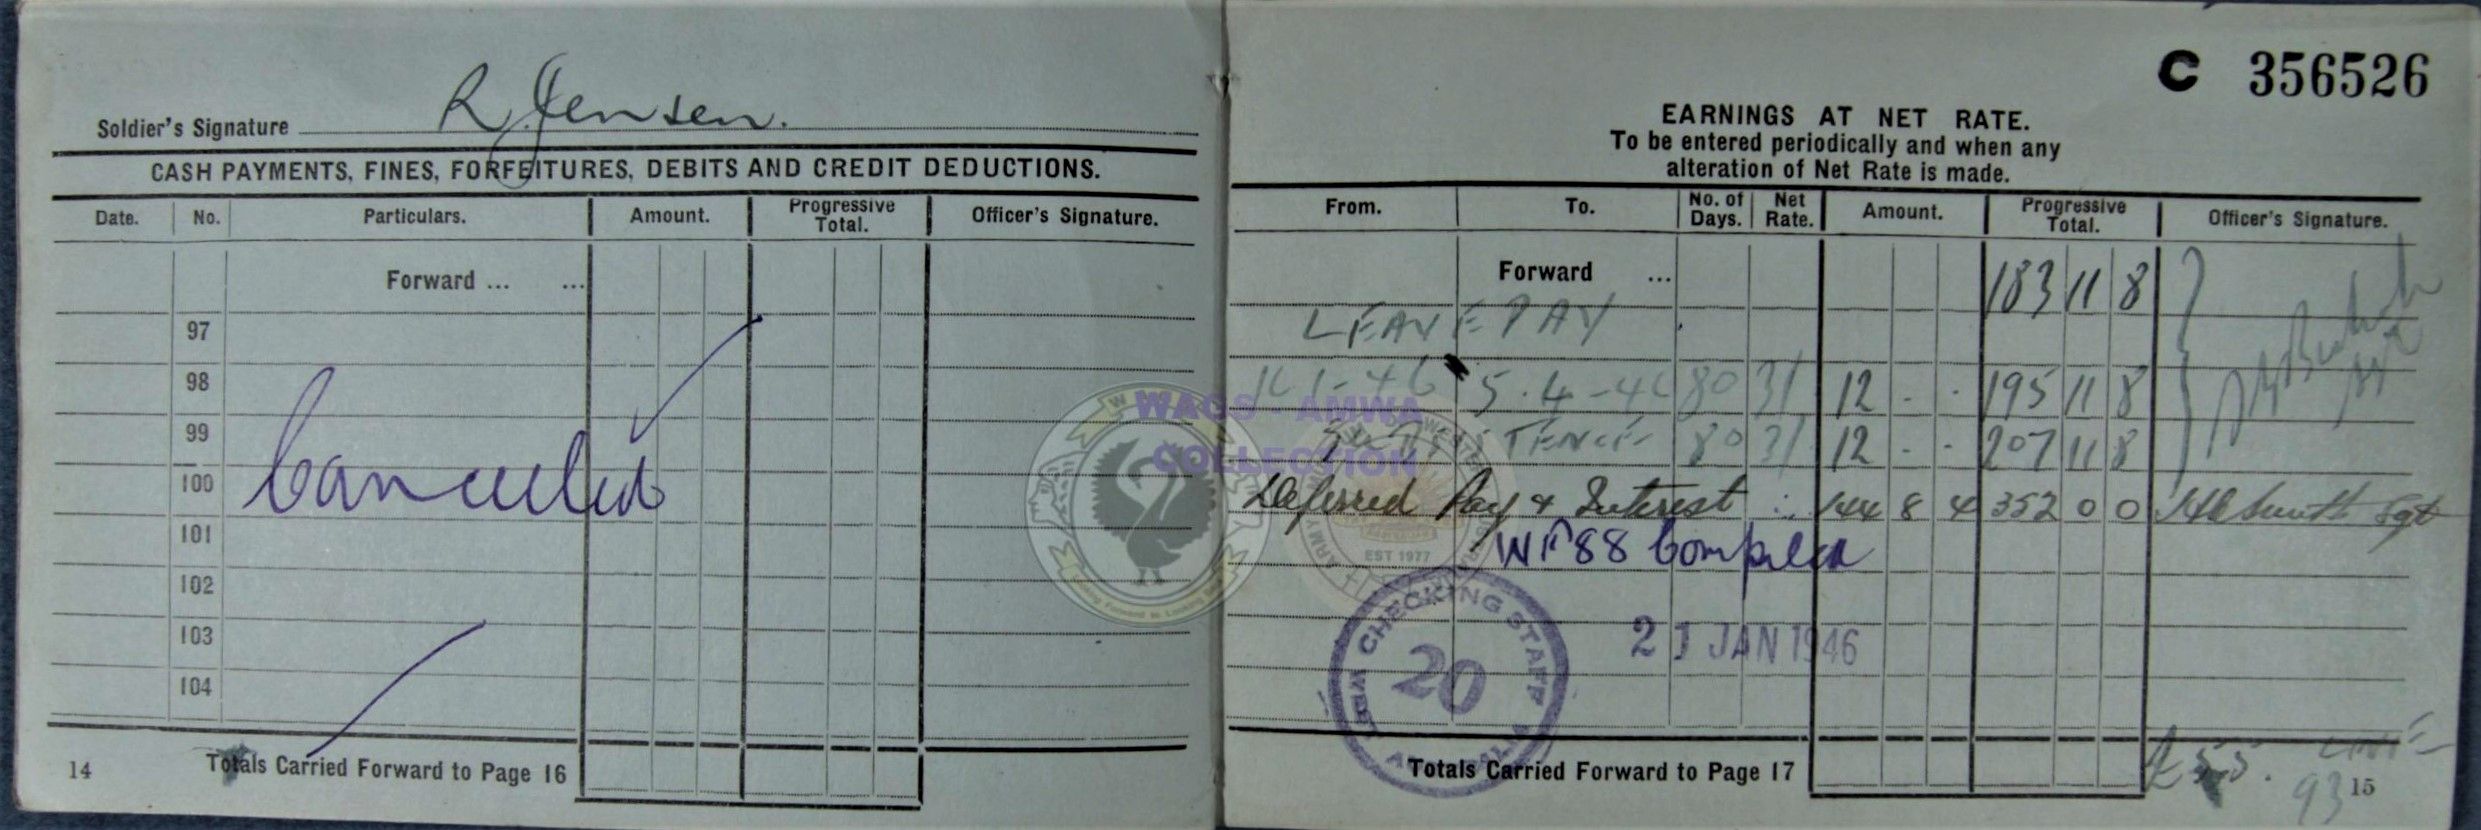 Soldier's Signature R. Jensen.
CASH PAYMENTS, FINES, FORFEITURES, DEBITS AND CREDIT DEDUCTIONS.
Date. No. Particulars. Amount. Progressive Total. Officer's Signature.
Forward ... ...
97
98
99
100
Cancelled
101
102
103
104
Totals Carried Forward to Page 16
14
C 356526
EARNINGS AT NET RATE.
To be entered periodically and when any
alteration of Net Rate is made.
From. To. No. of Days. Net Rate. Amount. Progressive Total. Officer's Signature.
Forward ... 183 11 8
LEAVE PAY
5.4-46 80 3/ 12 - - 195 11 8
80 3/ 12 - - 207 11 8
Deferred Pay & Interest 144 8 4 352 0 0 Smith Sgt
88 Completed
CHECKING STAFF
20
21 JAN 1946
Totals Carried Forward to Page 17
£55.
93
15
WAGS - AMWA
COLLECTION
EST 1977